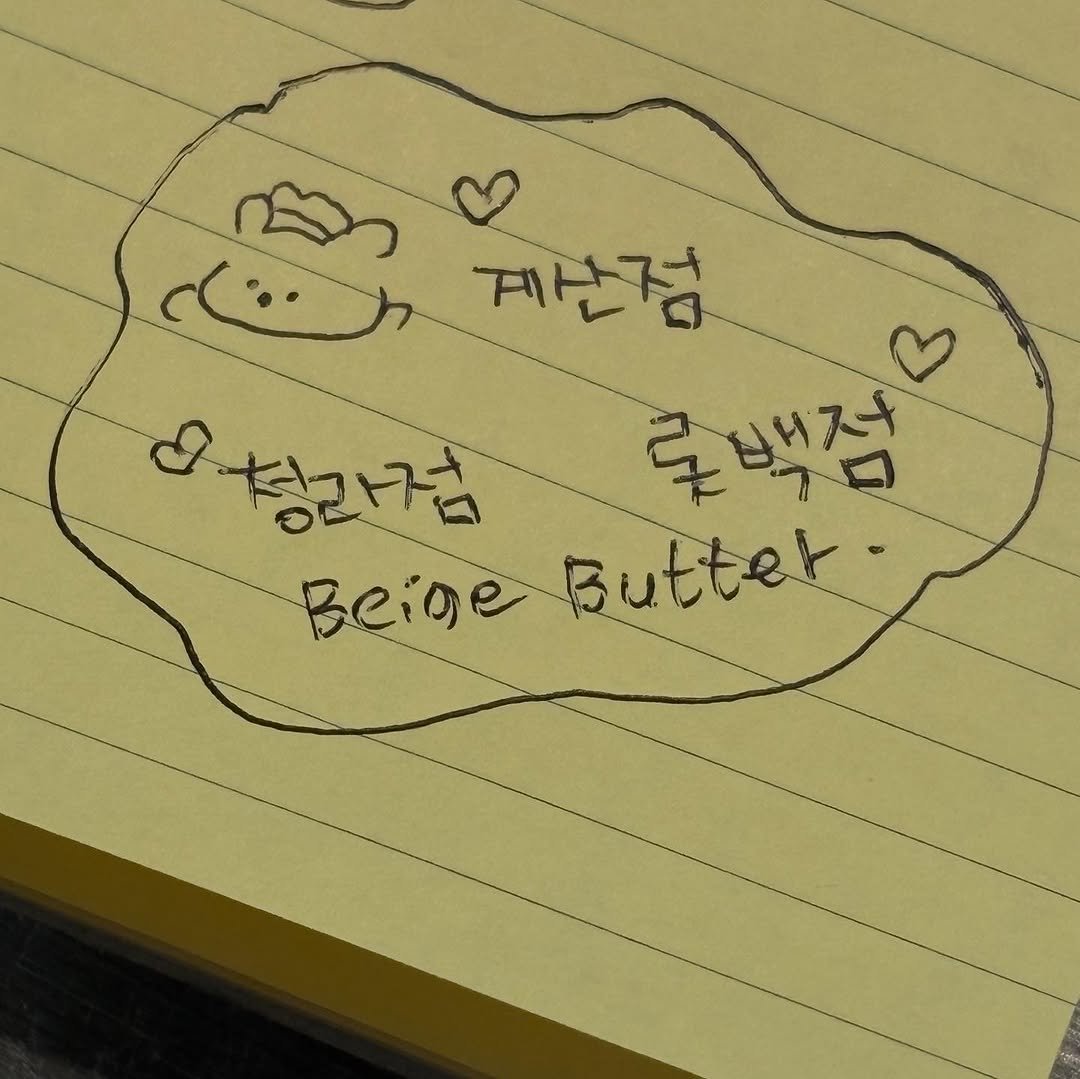 계산점
롯백점
청라점
Beige Butter.